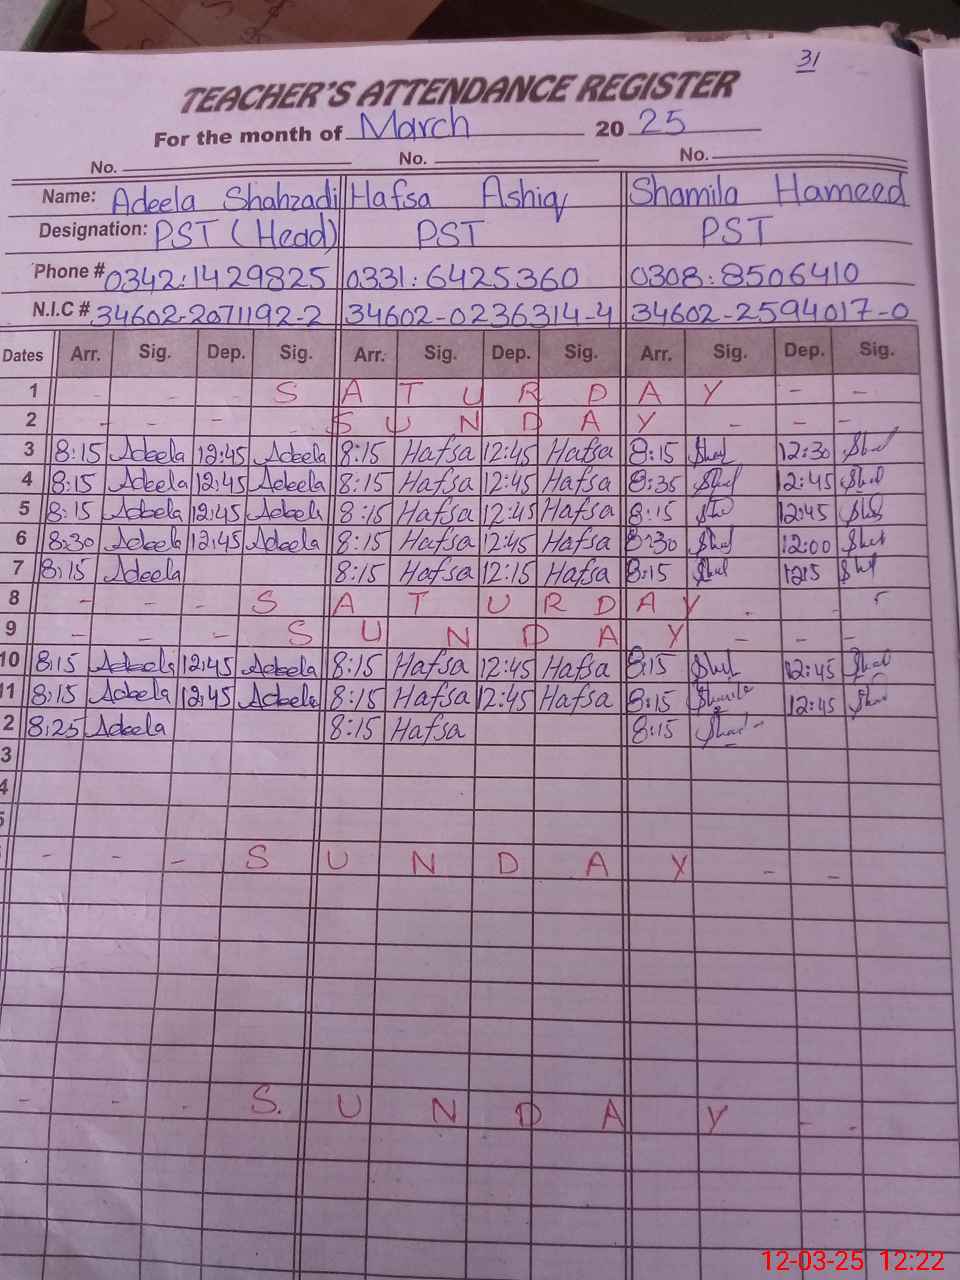 31
TEACHER'S ATTENDANCE REGISTER
For the month of March 20 25
No. No. No.
Name: Adeela Shahzadi Hafsa Ashiq Shamila Hameed
Designation: PST (Head) PST PST
Phone # 0342:1429825 0331:6425360 0308:8506410
N.I.C # 34602-2071192-2 34602-0236314-4 34602-2594017-0
Dates Arr. Sig. Dep. Sig. Arr. Sig. Dep. Sig. Arr. Sig. Dep. Sig.
1 - - - S A T U R D A Y - -
2 - - - S U N D A Y - - -
3 8:15 Adeela 12:45 Adeela 8:15 Hafsa 12:45 Hafsa 8:15 12:30
4 8:15 Adeela 12:45 Adeela 8:15 Hafsa 12:45 Hafsa 8:35 12:45
5 8:15 Adeela 12:45 Adeela 8:15 Hafsa 12:45 Hafsa 8:15 12:45
6 8:30 Adeela 12:45 Adeela 8:15 Hafsa 12:45 Hafsa 8:30 12:00
7 8:15 Adeela 8:15 Hafsa 12:15 Hafsa 8:15 12:15
8 - - - S A T U R D A Y - -
9 - - - S U N D A Y - - -
10 8:15 Adeela 12:45 Adeela 8:15 Hafsa 12:45 Hafsa 8:15 12:45
11 8:15 Adeela 12:45 Adeela 8:15 Hafsa 12:45 Hafsa 8:15 12:45
2 8:25 Adeela 8:15 Hafsa 8:15
3
4
5
- - - S U N D A Y - -
- - - S. U N D A Y - -
12-03-25 12:22